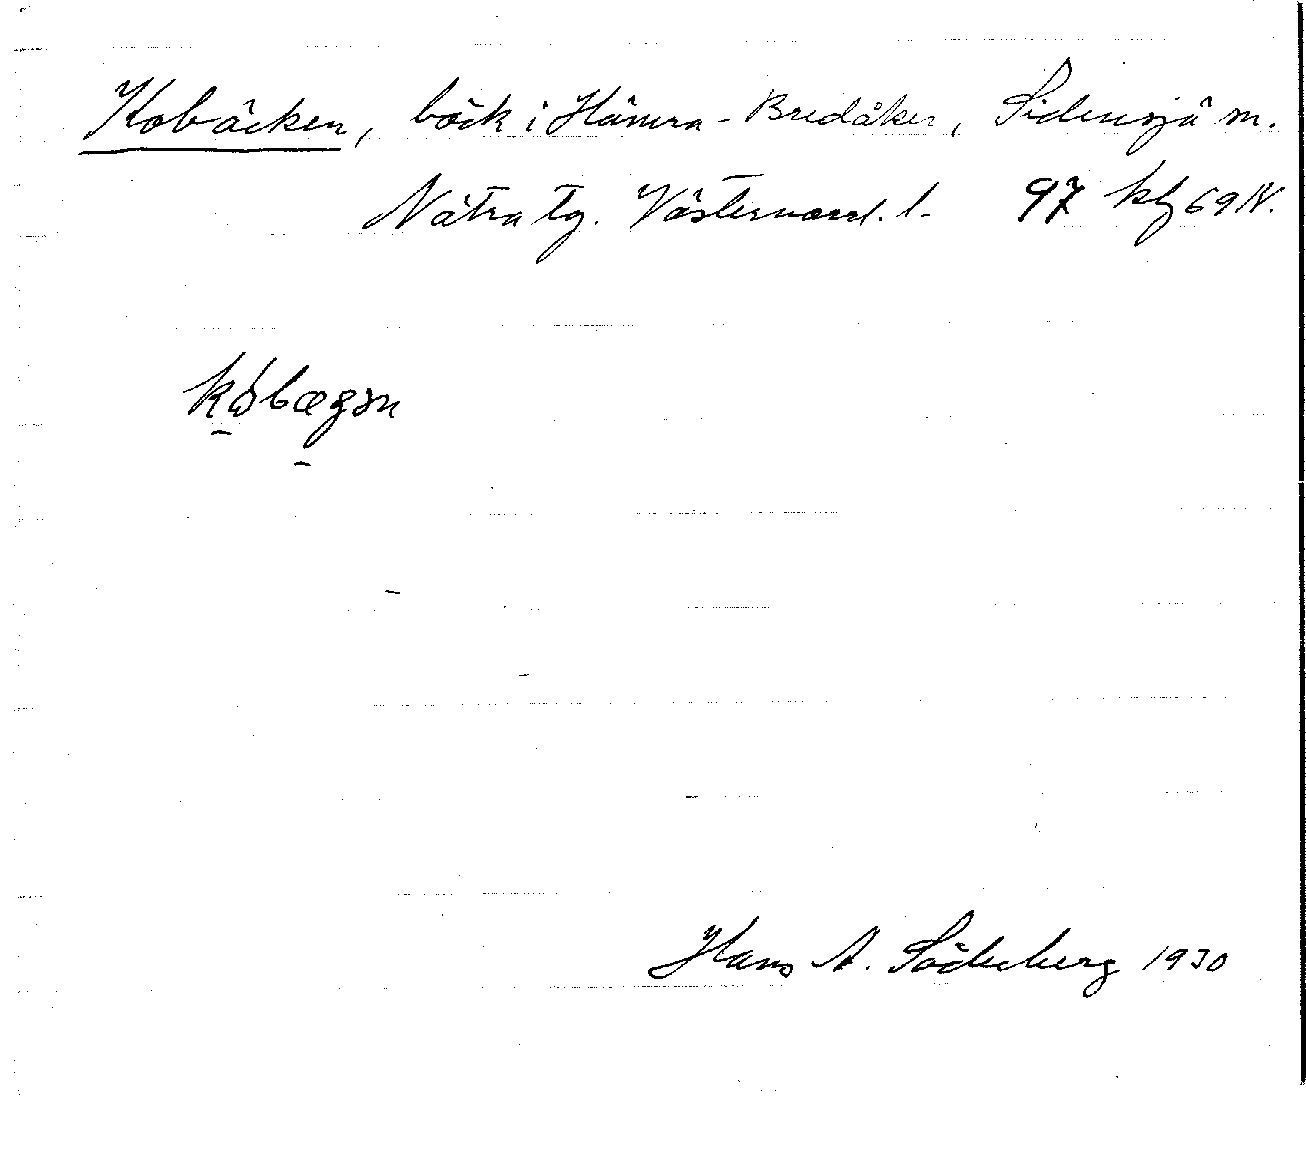 Kobäcken, bäck i Hämra - Bredåker, Sidensjö sn.
Nätra tg. Västernorrl. l. 97 kbl 69 N.
kóbægən
Hans A. Söderberg 1930